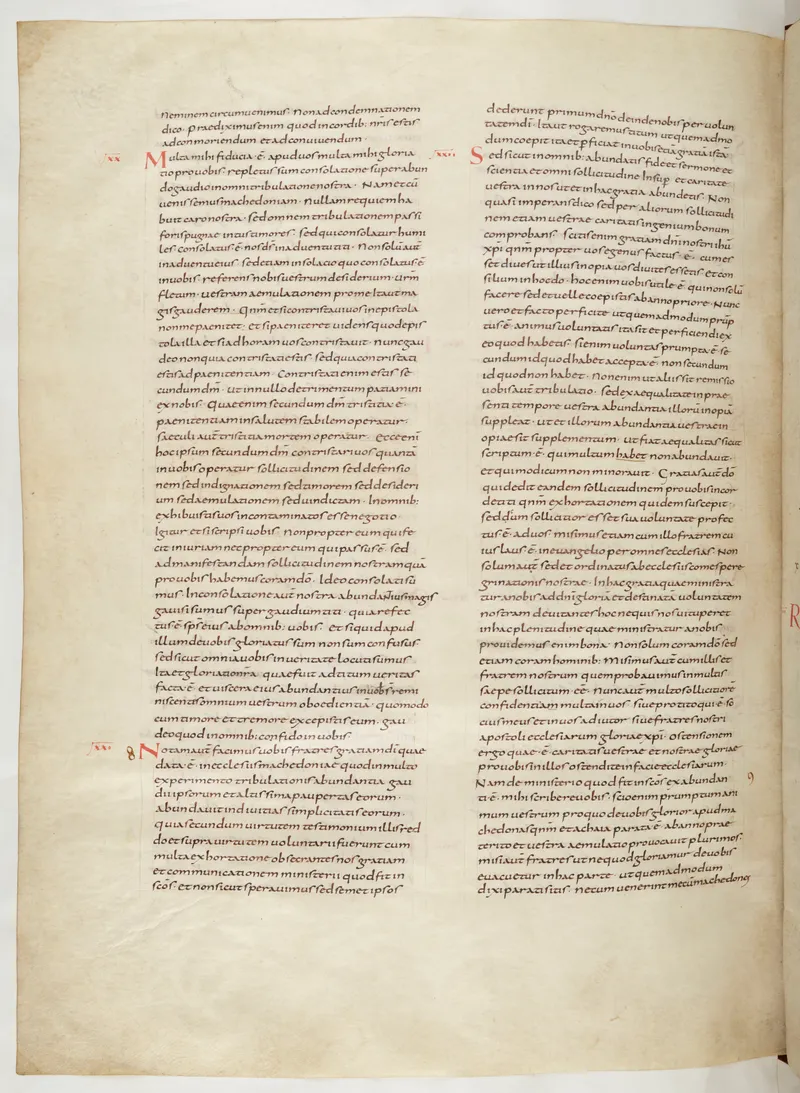 neminem circumuenimus· Non ad condemnationem
dico· praediximus enim quod in cordib: nr̄is estis
ad conmoriendum et ad conuiuendum·
xx Multa mihi fiducia· ē· apud uos multa mihi gloria
tio pro uobis· repletus sum consolatione superabun
do gaudio in omni tribulatione nostra· Nam et cū
uenissemus machedoniam· nullam requiem ha
buit caro nostra· sed omnem tribulationem passi
foris pugnae intus timores· sed qui consolatur humi
les consolatus·ē· nos d̄s in aduentu titi· Non solū aut̄
in aduentu eius sed etiam in solacio quo consolatus·ē·
in uobis· referens nobis uestrum desiderium· ur̄m
fletum· uestram aemulationem pro me Ita ut ma
gis gauderem· Qn̄m et si contristaui uos in epistola
non me paenitet· et si paeniteret uidens quod epis
tola illa et si ad horam uos contristauit· nunc gau
deo non quia contristati estis· sed quia contristati
estis ad paenitentiam· Contristati enim estis se
cundum dm̄· ut in nullo detrimentum patiamini
ex nobis· Quae enim secundum dm̄ tristitia·ē·
paenitentiam in salutem stabilem operatur·
saeculi aut̄ tristitia mortem operatur· ecce eni
hoc ipsum secundum dm̄ contristari uos quantā
in uobis operatur sollicitudinem sed defensio
nem sed indignationem sed timorem sed desideri
um sed aemulationem sed uindictam· In omnib:
exhibuistis uos incontaminatos esse negotio·
Igitur et si scripsi uobis non propter eum qui fe
cit iniuriam nec propter eum qui passus·ē· sed
ad manifestandam sollicitudinem nostram quā
pro uobis habemus coram dō· Ideo consolati su
mus· In consolatione aut̄ nostra abundantius magis
gauisi sumus super gaudium titi· quia refec
tus·ē· sps̄ eius ab omnib: uobis· et si quid apud
illum de uobis gloriatus sum non sum confusus
sed sicut omnia uobis in ueritate locuti sumus
Ita et gloriatio nr̄a quae fuit ad titum ueritas
facta·ē· et uiscera eius abundantius in uobis remi
niscentis omnium uestrum oboedientiā· quomodo
cum timore et tremore excepistis eum· gau
deo quod in omnib: confido in uobis
xxi Notam aut̄ facimus uobis fratres gratiam dī quae
data·ē· in ecclesiis machedoniae quod in multo
experimento tribulationis abundantia gau
dii ipsorum et altissima paupertas eorum·
abundauit in diuitias simplicitatis eorum·
quia secundum uirtutem testimonium illis red
do et supra uirtutem uoluntarii fuerunt cum
multa exhortatione obsecrantes nos gratiam
et communicationem ministerii quod fit in
sc̄os et non sicut sperauimus sed semet ipsos
dederunt primum dn̄o deinde nobis per uolun
tatem dī· Ita ut rogaremus titum ut quemadmo
dum coepit ita et perficiat in uobis etiā gratiā istā·
xxii Sed sicut in omnib: abundatis fide et sermone et
scientia et omni sollicitudine Insup et caritate
uestra in nos ut et in hac gratia abundetis· Non
quasi imperans dico sed per aliorum sollicitudi
nem etiam uestrae caritatis ingenium bonum
comprobans· scitis enim gratiam dn̄i nostri ihū
xp̄i qn̄m propter uos egenus factus·ē· cum es
set diues ut illius inopia uos diuites essetis et con
silium in hoc do· hoc enim uobis utile·ē· qui non solū
facere sed et uelle coepistis ab anno priore· Nunc
uero et facto perficite ut quemadmodum prūp
tus·ē· animus uoluntatis ita sit et perficiendi ex
eo quod habetis· si enim uoluntas prumpta·ē· se
cundum id quod habet accepta·ē· non secundum
id quod non habet· Non enim ut aliis sit remissio
uobis aut̄ tribulatio· sed ex aequalitate in prae
senti tempore uestra abundantia illorū inopiā
suppleat· ut et illorum abundantia uestrae in
opiae sit supplementum· ut fiat aequalitas sicut
scriptum·ē· qui multum habet non abundauit·
et qui modicum non minorauit· Gratias aut̄ dō
qui dedit eandem sollicitudinem pro uobis in cor
de titi qn̄m exhortationem quidem suscepit·
sed dum sollicitior esset sua uoluntate profec
tus·ē· ad uos· misimus etiam cum illo fratrem cu
ius laus·ē· in euangelio per omnes ecclesias· Non
solum aut̄ sed et ordinatus ab ecclesiis comes pere
grinationis nostrae· In hac gratia quae ministra
tur a nobis ad dn̄i gloriā et destinatā uoluntatem
nostram deuitantes hoc ne quis nos uituperet
in hac plenitudine quae ministratur a nobis·
prouidemus enim bona· Non solum coram dō sed
etiam coram hominib: Misimus aut̄ cum illis et
fratrem nostrum quem probauimus in multis
saepe sollicitum·eē· Nunc aut̄ multo sollicitiorē
confidentia multa in uos· siue pro tito qui·ē· so
cius meus et in uos adiutor· siue fratres nostri
apostoli ecclesiarum gloriae xp̄i· ostensionem
ergo quae·ē· caritatis uestrae et nostrae gloriae
pro uobis in illos ostendite in faciē ecclesiarum·
Nam de ministerio quod fit in sc̄os ex abundan
ti·ē· mihi scribere uobis· scio enim prumptum ani
mum uestrum pro quo de uobis glorior apud ma
chedonas qn̄m et achaia parata·ē· ab anno prae
terito et uestra aemulatio prouocauit plurimos·
misi aut̄ fratres ut ne quod gloriamur de uobis
euacuetur in hac parte· ut quemadmodum
dixi parati sitis· ne cum uenerint mecū machedones